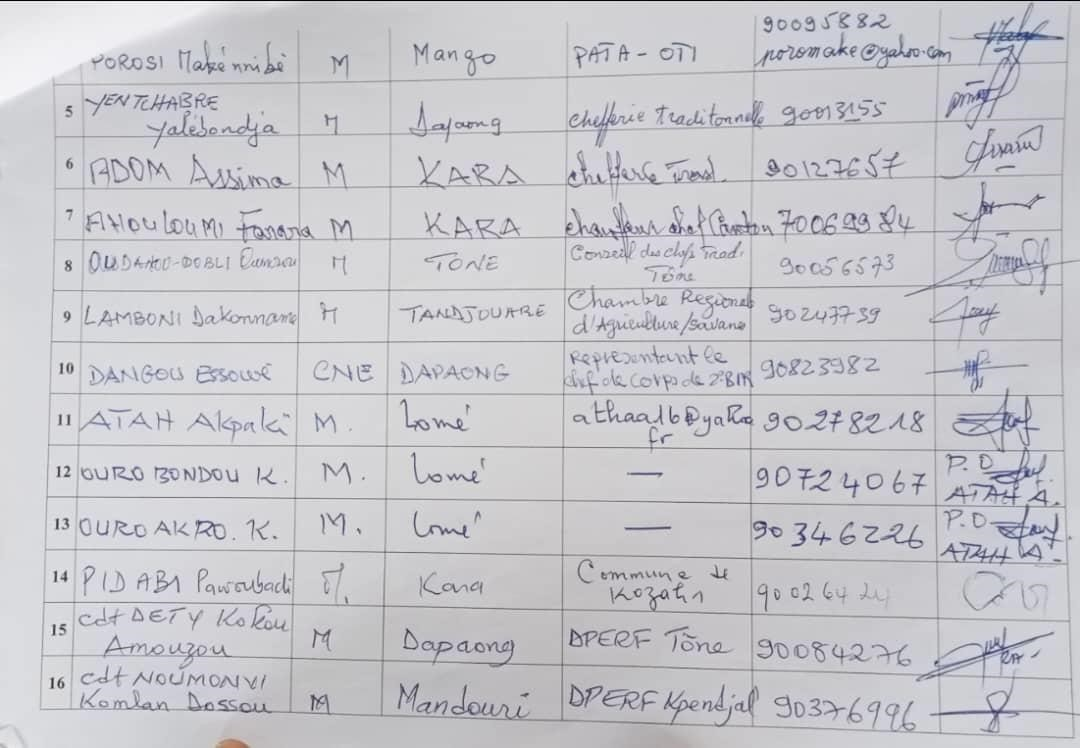 POROSI Makénnibé M Mango PATA-OTI 90095882
poromake@yahoo.com
5 YENTCHABRE
Yalébondja M Dapaong chefferie traditonnelle 90013155
6 ADOM Assima M KARA chefferie Trad. 90127657
7 AHOULOUMI Fanara M KARA chef Canton 70069984
8 M TONE Conseil des chefs Trad.
Tône 90056573
9 LAMBONI Dakonname M TANDJOUARE Chambre Regional
d'Agriculture/Savane 90247739
10 DANGOU Essowè CNE DAPAONG Representant le
chef de corps de 90823982
11 ATAH Akpaki M. Lomé athaa16@yahoo
fr 90278218
12 OURO BONDOU K. M. Lomé — 90724067 P.O
ATAH A.
13 OURO AKRO. K. M. Lomé — 90346226 P.O
ATAH A.
14 PIDABI Pawoubadi M. Kara Commune de
Kozah1 90026424
15 cdt DETY Kokou
Amouzou M Dapaong DPERF Tône 90084276
16 cdt NOUMONVI
Komlan Dossou M Mandouri DPERF Kpendjal 90376996